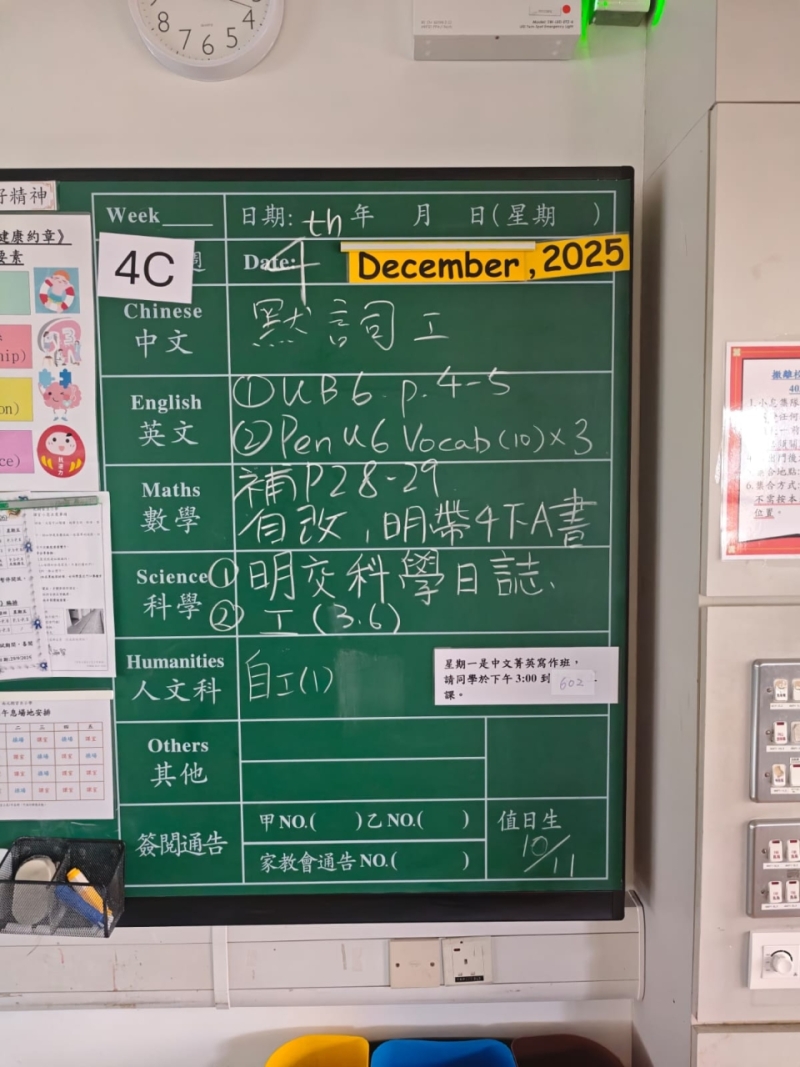 8
7 6 5 4
好精神
Week____ 日期: 年 月 日(星期 )
th
4
4C 週 Date: December, 2025
Chinese 中文 默 詞工
English 英文 ①UB6. p.4-5
②Pen U6 Vocab(10)×3
Maths 數學 補P28-29
有改,明帶4下A書
Science 科學 ①明交科學日誌、
②工(3.6)
Humanities 人文科 自工(1)
星期一是中文菁英寫作班,
請同學於下午 3:00 到 602
課。
Others 其他
簽閱通告 甲 NO.( )乙 NO.( )
家教會通告 NO.( )
值日生
10/11
健康約章》
要素
hip)
on)
ce)
午息場地安排
二 三 四 五
撤離校
位置。